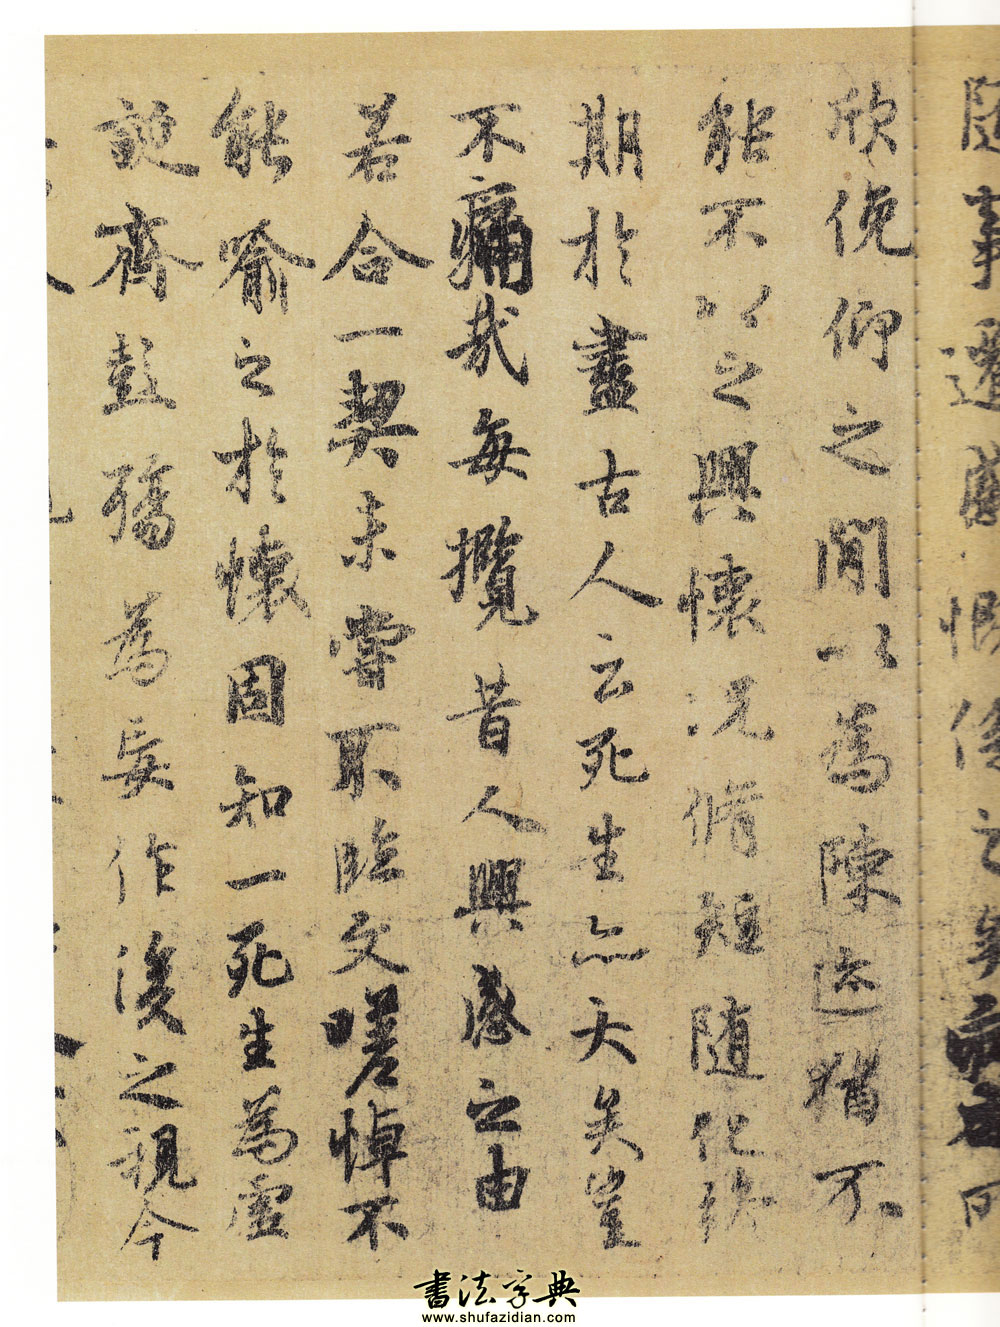 隨事遷感慨係之矣向之所
欣俛仰之閒以為陳迹猶不
能不以之興懷況脩短隨化終
期於盡古人云死生亦大矣豈
不痛哉每攬昔人興感之由
若合一契未嘗不臨文嗟悼不
能喻之於懷固知一死生為虛
誕齊彭殤為妄作後之視今
書法字典
www.shufazidian.com